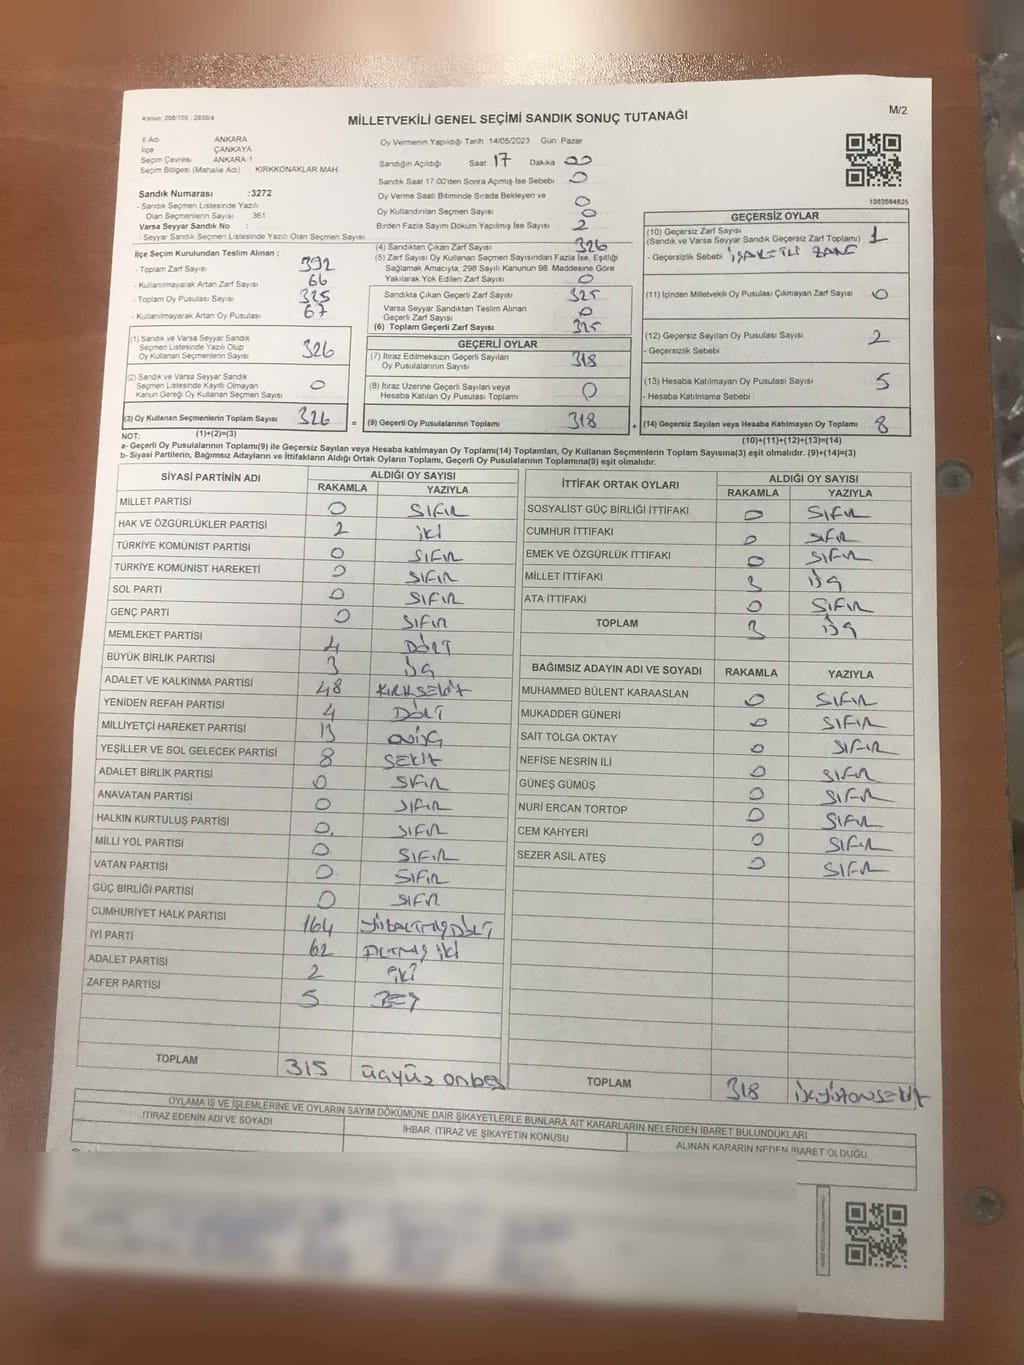 Kanun: 298/105 : 2839/4
MİLLETVEKİLİ GENEL SEÇİMİ SANDIK SONUÇ TUTANAĞI
M/2
İl Adı ANKARA
İlçe ÇANKAYA
Seçim Çevresi ANKARA-1
Seçim Bölgesi (Mahalle Adı) KIRKKONAKLAR MAH
Sandık Numarası :3272
- Sandık Seçmen Listesinde Yazılı
Olan Seçmenlerin Sayısı 361
Varsa Seyyar Sandık No :
- Seyyar Sandık Seçmen Listesinde Yazılı Olan Seçmen Sayısı
İlçe Seçim Kurulundan Teslim Alınan ;
- Toplam Zarf Sayısı 392
- Kullanılmayarak Artan Zarf Sayısı 66
- Toplam Oy Pusulası Sayısı
- Kullanılmayarak Artan Oy Pusulası 67
(1) Sandık ve Varsa Seyyar Sandık
Seçmen Listesinde Yazılı Olup
Oy Kullanan Seçmenlerin Sayısı 326
(2) Sandık ve Varsa Seyyar Sandık
Seçmen Listesinde Kayıtlı Olmayan
Kanun Gereği Oy Kullanan Seçmen Sayısı 0
(3) Oy Kullanan Seçmenlerin Toplam Sayısı 326 =
(1)+(2)=(3)
Oy Vermenin Yapıldığı Tarih 14/05/2023 Gün: Pazar
Sandığın Açıldığı Saat 17 Dakika 00
Sandık Saat 17.00'den Sonra Açılmış İse Sebebi 0
Oy Verme Saati Bitiminde Sırada Bekleyen ve
Oy Kullandırılan Seçmen Sayısı 0
Birden Fazla Sayım Döküm Yapılmış İse Sayısı 2
(4) Sandıktan Çıkan Zarf Sayısı 326
(5) Zarf Sayısı Oy Kullanan Seçmen Sayısından Fazla İse, Eşitliği
Sağlamak Amacıyla, 298 Sayılı Kanunun 98. Maddesine Göre
Yakılarak Yok Edilen Zarf Sayısı 0
Sandıkta Çıkan Geçerli Zarf Sayısı 325
Varsa Seyyar Sandıktan Teslim Alınan
Geçerli Zarf Sayısı 0
(6) Toplam Geçerli Zarf Sayısı 325
GEÇERLİ OYLAR
(7) İtiraz Edilmeksizin Geçerli Sayılan
Oy Pusulalarının Sayısı 318
(8) İtiraz Üzerine Geçerli Sayılan veya
Hesaba Katılan Oy Pusulası Toplamı 0
(9) Geçerli Oy Pusulalarının Toplamı 318 +
1083684825
GEÇERSİZ OYLAR
(10) Geçersiz Zarf Sayısı
(Sandık ve Varsa Seyyar Sandık Geçersiz Zarf Toplamı) 1
- Geçersizlik Sebebi İŞARETLİ ZARF
(11) İçinden Milletvekili Oy Pusulası Çıkmayan Zarf Sayısı 0
(12) Geçersiz Sayılan Oy Pusulası Sayısı 2
- Geçersizlik Sebebi
(13) Hesaba Katılmayan Oy Pusulası Sayısı 5
- Hesaba Katılmama Sebebi
(14) Geçersiz Sayılan veya Hesaba Katılmayan Oy Toplamı 8
(10)+(11)+(12)+(13)=(14)
NOT:
a- Geçerli Oy Pusulalarının Toplamı(9) ile Geçersiz Sayılan veya Hesaba katılmayan Oy Toplamı(14) Toplamları, Oy Kullanan Seçmenlerin Toplam Sayısına(3) eşit olmalıdır. (9)+(14)=(3)
b- Siyasi Partilerin, Bağımsız Adayların ve İttifakların Aldığı Ortak Oyların Toplamı, Geçerli Oy Pusulalarının Toplamına(9) eşit olmalıdır.
SİYASİ PARTİNİN ADI ALDIĞI OY SAYISI
RAKAMLA YAZIYLA
MİLLET PARTİSİ 0 SIFIR
HAK VE ÖZGÜRLÜKLER PARTİSİ 2 İKİ
TÜRKİYE KOMÜNİST PARTİSİ 0 SIFIR
TÜRKİYE KOMÜNİST HAREKETİ 0 SIFIR
SOL PARTİ 0 SIFIR
GENÇ PARTİ 0 SIFIR
MEMLEKET PARTİSİ 4 DÖRT
BÜYÜK BİRLİK PARTİSİ 3 ÜÇ
ADALET VE KALKINMA PARTİSİ 48 KIRKSEKİZ
YENİDEN REFAH PARTİSİ 4 DÖRT
MİLLİYETÇİ HAREKET PARTİSİ 13 ONÜÇ
YEŞİLLER VE SOL GELECEK PARTİSİ 8 SEKİZ
ADALET BİRLİK PARTİSİ 0 SIFIR
ANAVATAN PARTİSİ 0 SIFIR
HALKIN KURTULUŞ PARTİSİ 0 SIFIR
MİLLİ YOL PARTİSİ 0 SIFIR
VATAN PARTİSİ 0 SIFIR
GÜÇ BİRLİĞİ PARTİSİ 0 SIFIR
CUMHURİYET HALK PARTİSİ 164 YÜZALTMIŞDÖRT
İYİ PARTİ 62 ALTMIŞ İKİ
ADALET PARTİSİ 2 İKİ
ZAFER PARTİSİ 5 BEŞ
TOPLAM 315 üçyüz onbeş
İTTİFAK ORTAK OYLARI ALDIĞI OY SAYISI
RAKAMLA YAZIYLA
SOSYALİST GÜÇ BİRLİĞİ İTTİFAKI 0 SIFIR
CUMHUR İTTİFAKI 0 SIFIR
EMEK VE ÖZGÜRLÜK İTTİFAKI 0 SIFIR
MİLLET İTTİFAKI 3 ÜÇ
ATA İTTİFAKI 0 SIFIR
TOPLAM 3 ÜÇ
BAĞIMSIZ ADAYIN ADI VE SOYADI RAKAMLA YAZIYLA
MUHAMMED BÜLENT KARAASLAN 0 SIFIR
MUKADDER GÜNERİ 0 SIFIR
SAİT TOLGA OKTAY 0 SIFIR
NEFİSE NESRİN İLİ 0 SIFIR
GÜNEŞ GÜMÜŞ 0 SIFIR
NURİ ERCAN TORTOP 0 SIFIR
CEM KAHYERİ 0 SIFIR
SEZER ASİL ATEŞ 0 SIFIR
TOPLAM 318
OYLAMA İŞ VE İŞLEMLERİNE VE OYLARIN SAYIM DÖKÜMÜNE DAİR ŞİKAYETLERLE BUNLARA AİT KARARLARIN NELERDEN İBARET BULUNDUKLARI
İTİRAZ EDENİN ADI VE SOYADI İHBAR, İTİRAZ VE ŞİKAYETİN KONUSU ALINAN KARARIN NEDEN İBARET OLDUĞU